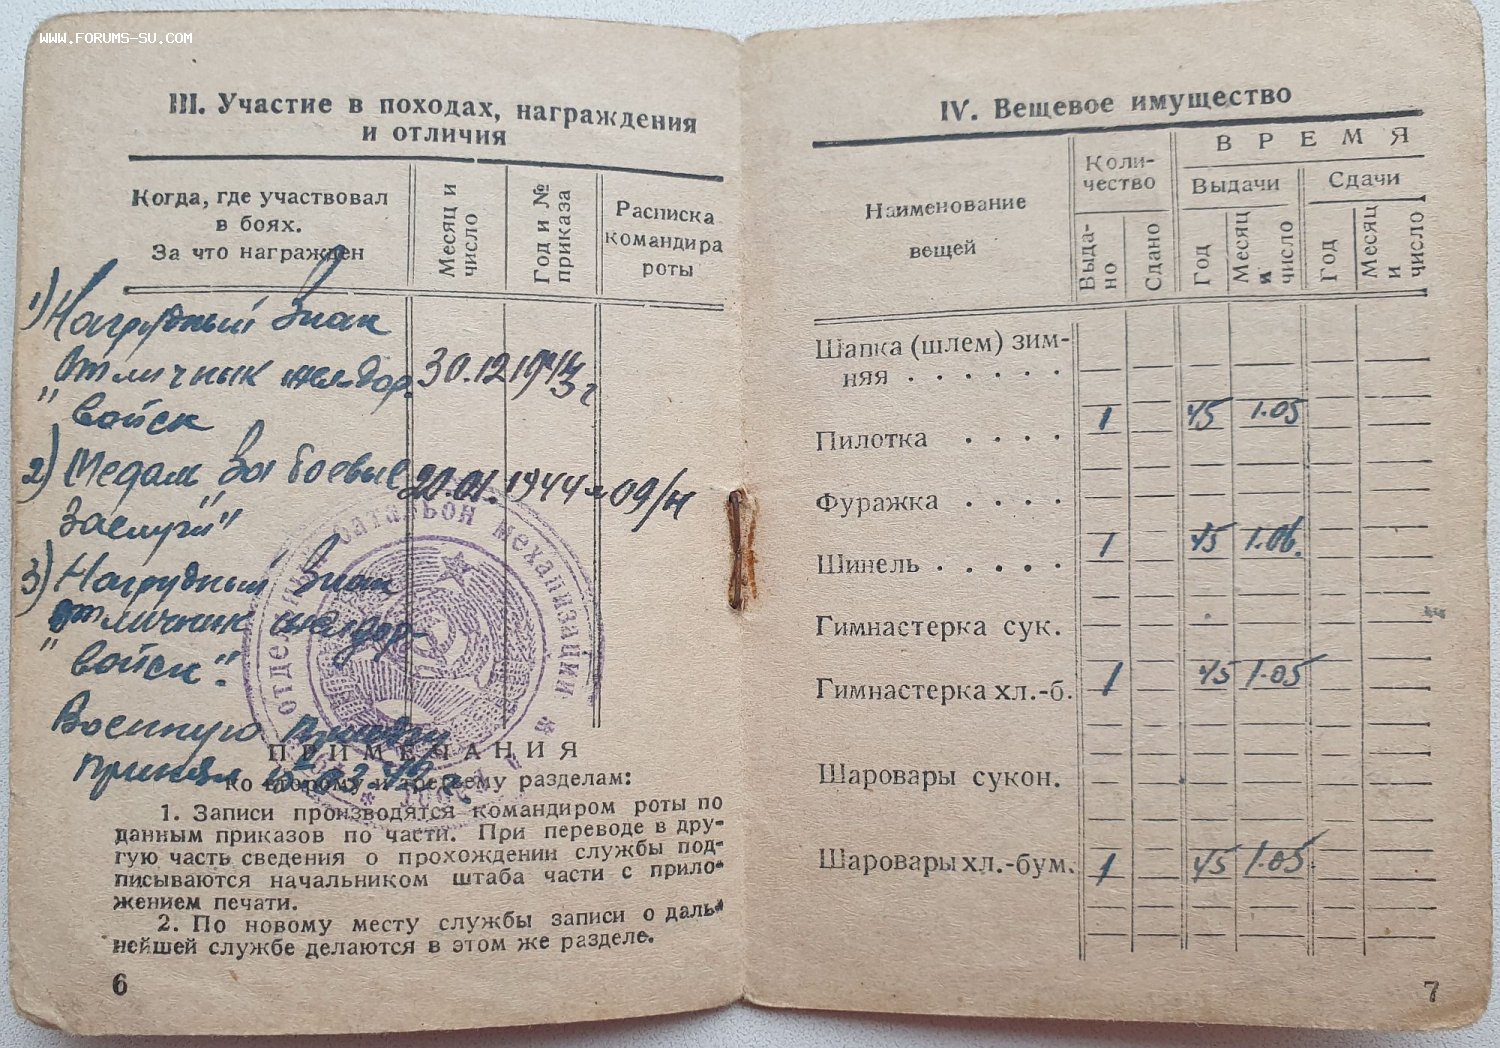 WWW.FORUMS-SU.COM
III. Участие в походах, награждения
и отличия
Когда, где участвовал
в боях.
За что награжден
Месяц и
число
Год и №
приказа
Расписка
командира
роты
1) Нагрудный Знак
"Отличник жел-дор.
войск
30.12 1943 г
2) Медаль "За боевые
Заслуги"
20.01. 1944 г 09/н
3) Нагрудный Знак
"Отличник желдор-
войск".
Военную присягу
принял
отдельный батальон механизации
ПРИМЕЧАНИЯ
ко второму и третьему разделам:
1. Записи производятся командиром роты по
данным приказов по части. При переводе в дру-
гую часть сведения о прохождении службы под-
писываются начальником штаба части с прило-
жением печати.
2. По новому месту службы записи о даль-
нейшей службе делаются в этом же разделе.
6
IV. Вещевое имущество
Наименование
вещей
Коли-
чество
ВРЕМЯ
Выдачи
Сдачи
Выда-
но
Сдано
Год
Месяц
и
число
Год
Месяц
и
число
Шапка (шлем) зим-
няя . . . . . .
Пилотка . . . . 1 45 1.05
Фуражка . . . .
Шинель . . . . . 1 45 1.06.
Гимнастерка сук.
Гимнастерка хл.-б. 1 45 1.05
Шаровары сукон.
Шаровары хл.-бум. 1 45 1.05.
7